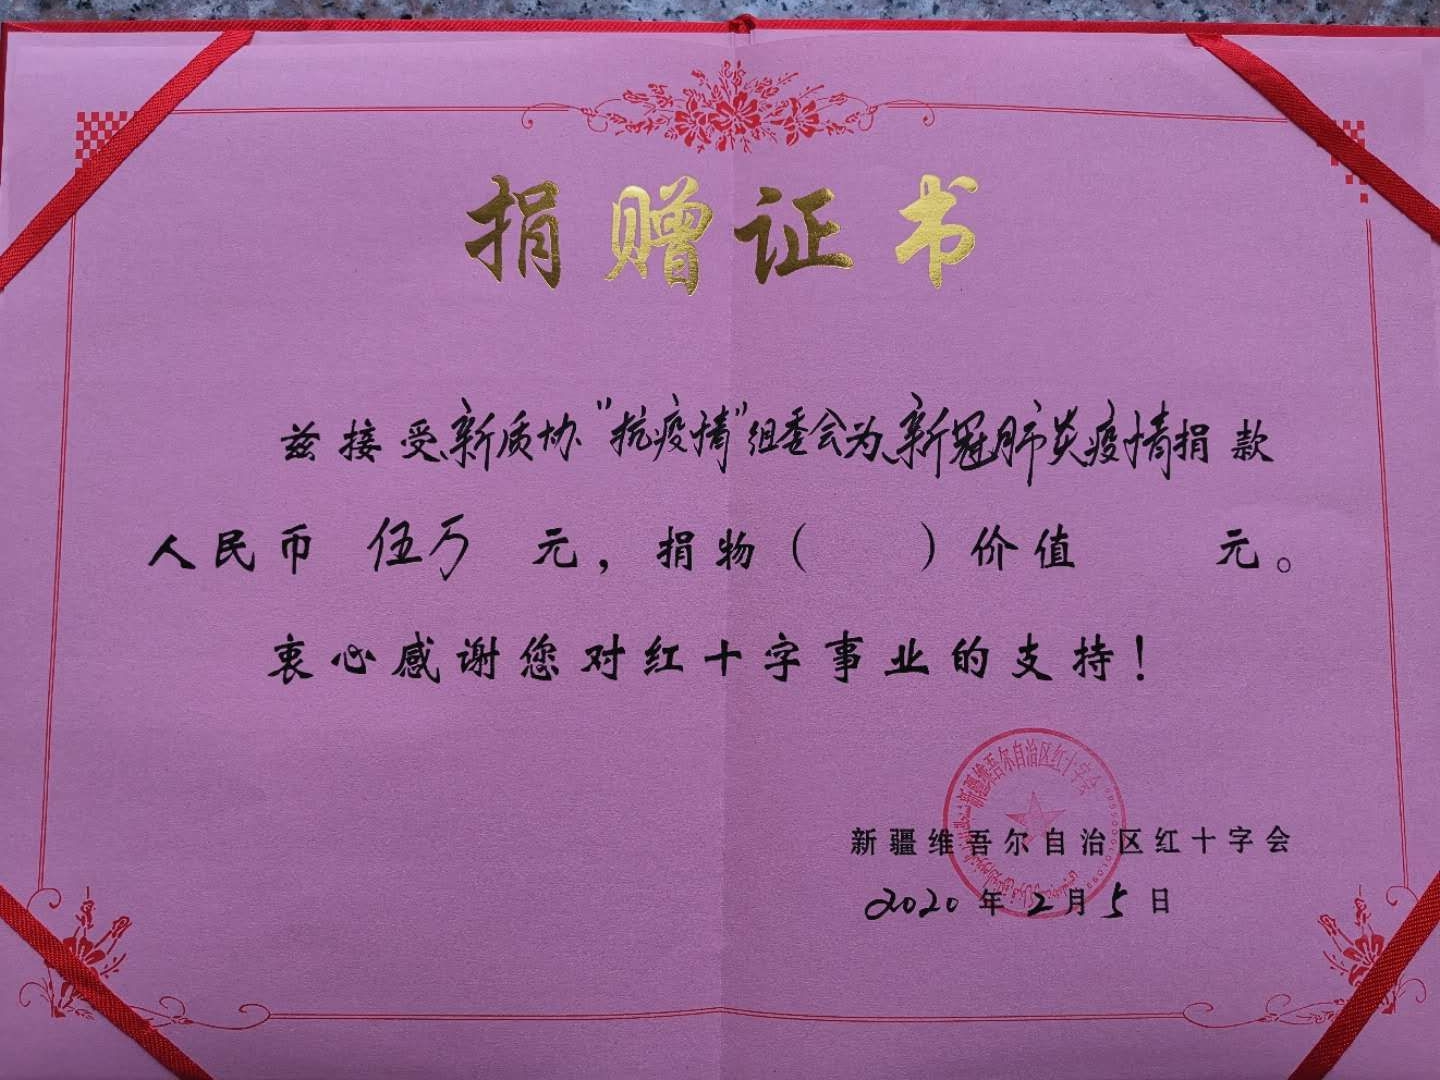 捐赠证书
兹接受新质协“抗疫情”组委会为新冠肺炎疫情捐款
人民币 伍万 元，捐物（ ）价值 元。
衷心感谢您对红十字事业的支持！
新疆维吾尔自治区红十字会
新疆维吾尔自治区红十字会
2020年2月5日